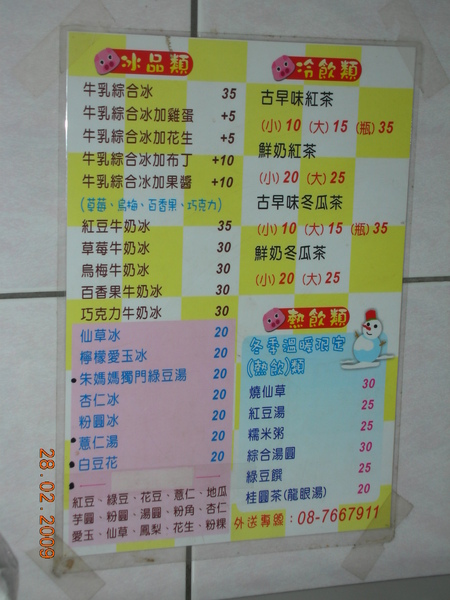 冰品類
牛乳綜合冰 35
牛乳綜合冰加雞蛋 +5
牛乳綜合冰加花生 +5
牛乳綜合冰加布丁 +10
牛乳綜合冰加果醬 +10
(草莓、烏梅、百香果、巧克力)
紅豆牛奶冰 35
草莓牛奶冰 30
烏梅牛奶冰 30
百香果牛奶冰 30
巧克力牛奶冰 30
仙草冰 20
檸檬愛玉冰 20
朱媽媽獨門綠豆湯 20
杏仁冰 20
粉圓冰 20
薏仁湯 20
白豆花 20
紅豆、綠豆、花豆、薏仁、地瓜
芋圓、粉圓、湯圓、粉角、杏仁
愛玉、仙草、鳳梨、花生、粉粿
冷飲類
古早味紅茶
(小) 10 (大) 15 (瓶) 35
鮮奶紅茶
(小) 20 (大) 25
古早味冬瓜茶
(小) 10 (大) 15 (瓶) 35
鮮奶冬瓜茶
(小) 20 (大) 25
熱飲類
冬季溫暖限定
(熱飲)類
燒仙草 30
紅豆湯 25
糯米粥 25
綜合湯圓 30
綠豆饌 25
桂圓茶(龍眼湯) 20
外送專線：08-7667911
28.02.2009